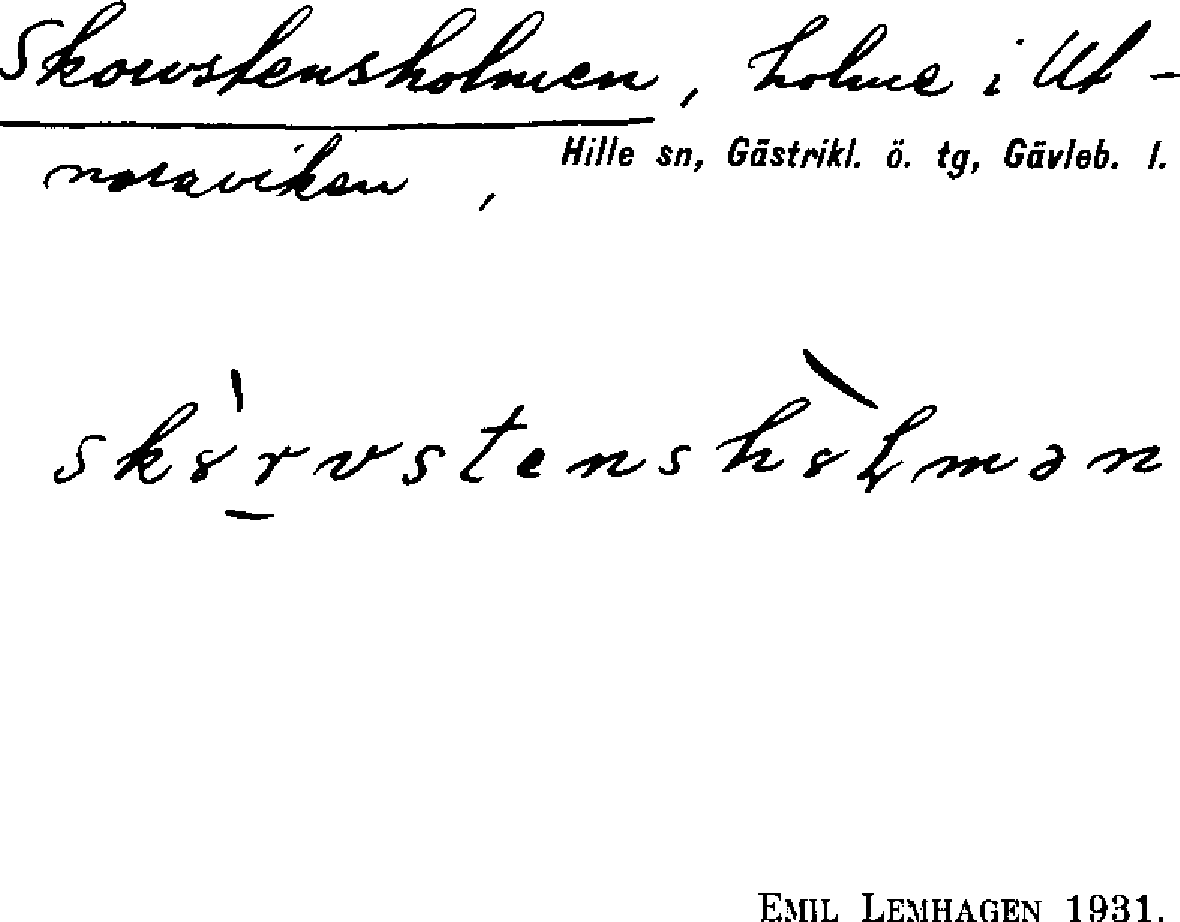 Skorvstensholmen, holme i Ut-
noraviken,
Hille sn, Gästrikl. ö. tg, Gävleb. l.
skȣrvstenshȣlmən
EMIL LEMHAGEN 1931.